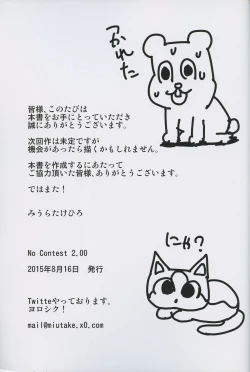 つかれた
皆様、このたびは
本書をお手にとっていただき
誠にありがとうございます。
次回作は未定ですが
機会があったら描くかもしれません。
本書を作成するにあたって
ご協力頂いた皆様、ありがとうございます。
ではまた！
みうらたけひろ
にゃ？
No Contest 2.00
2015年8月16日　発行
Twitteやっております。
ヨロシク！
mail@miutake.x0.com